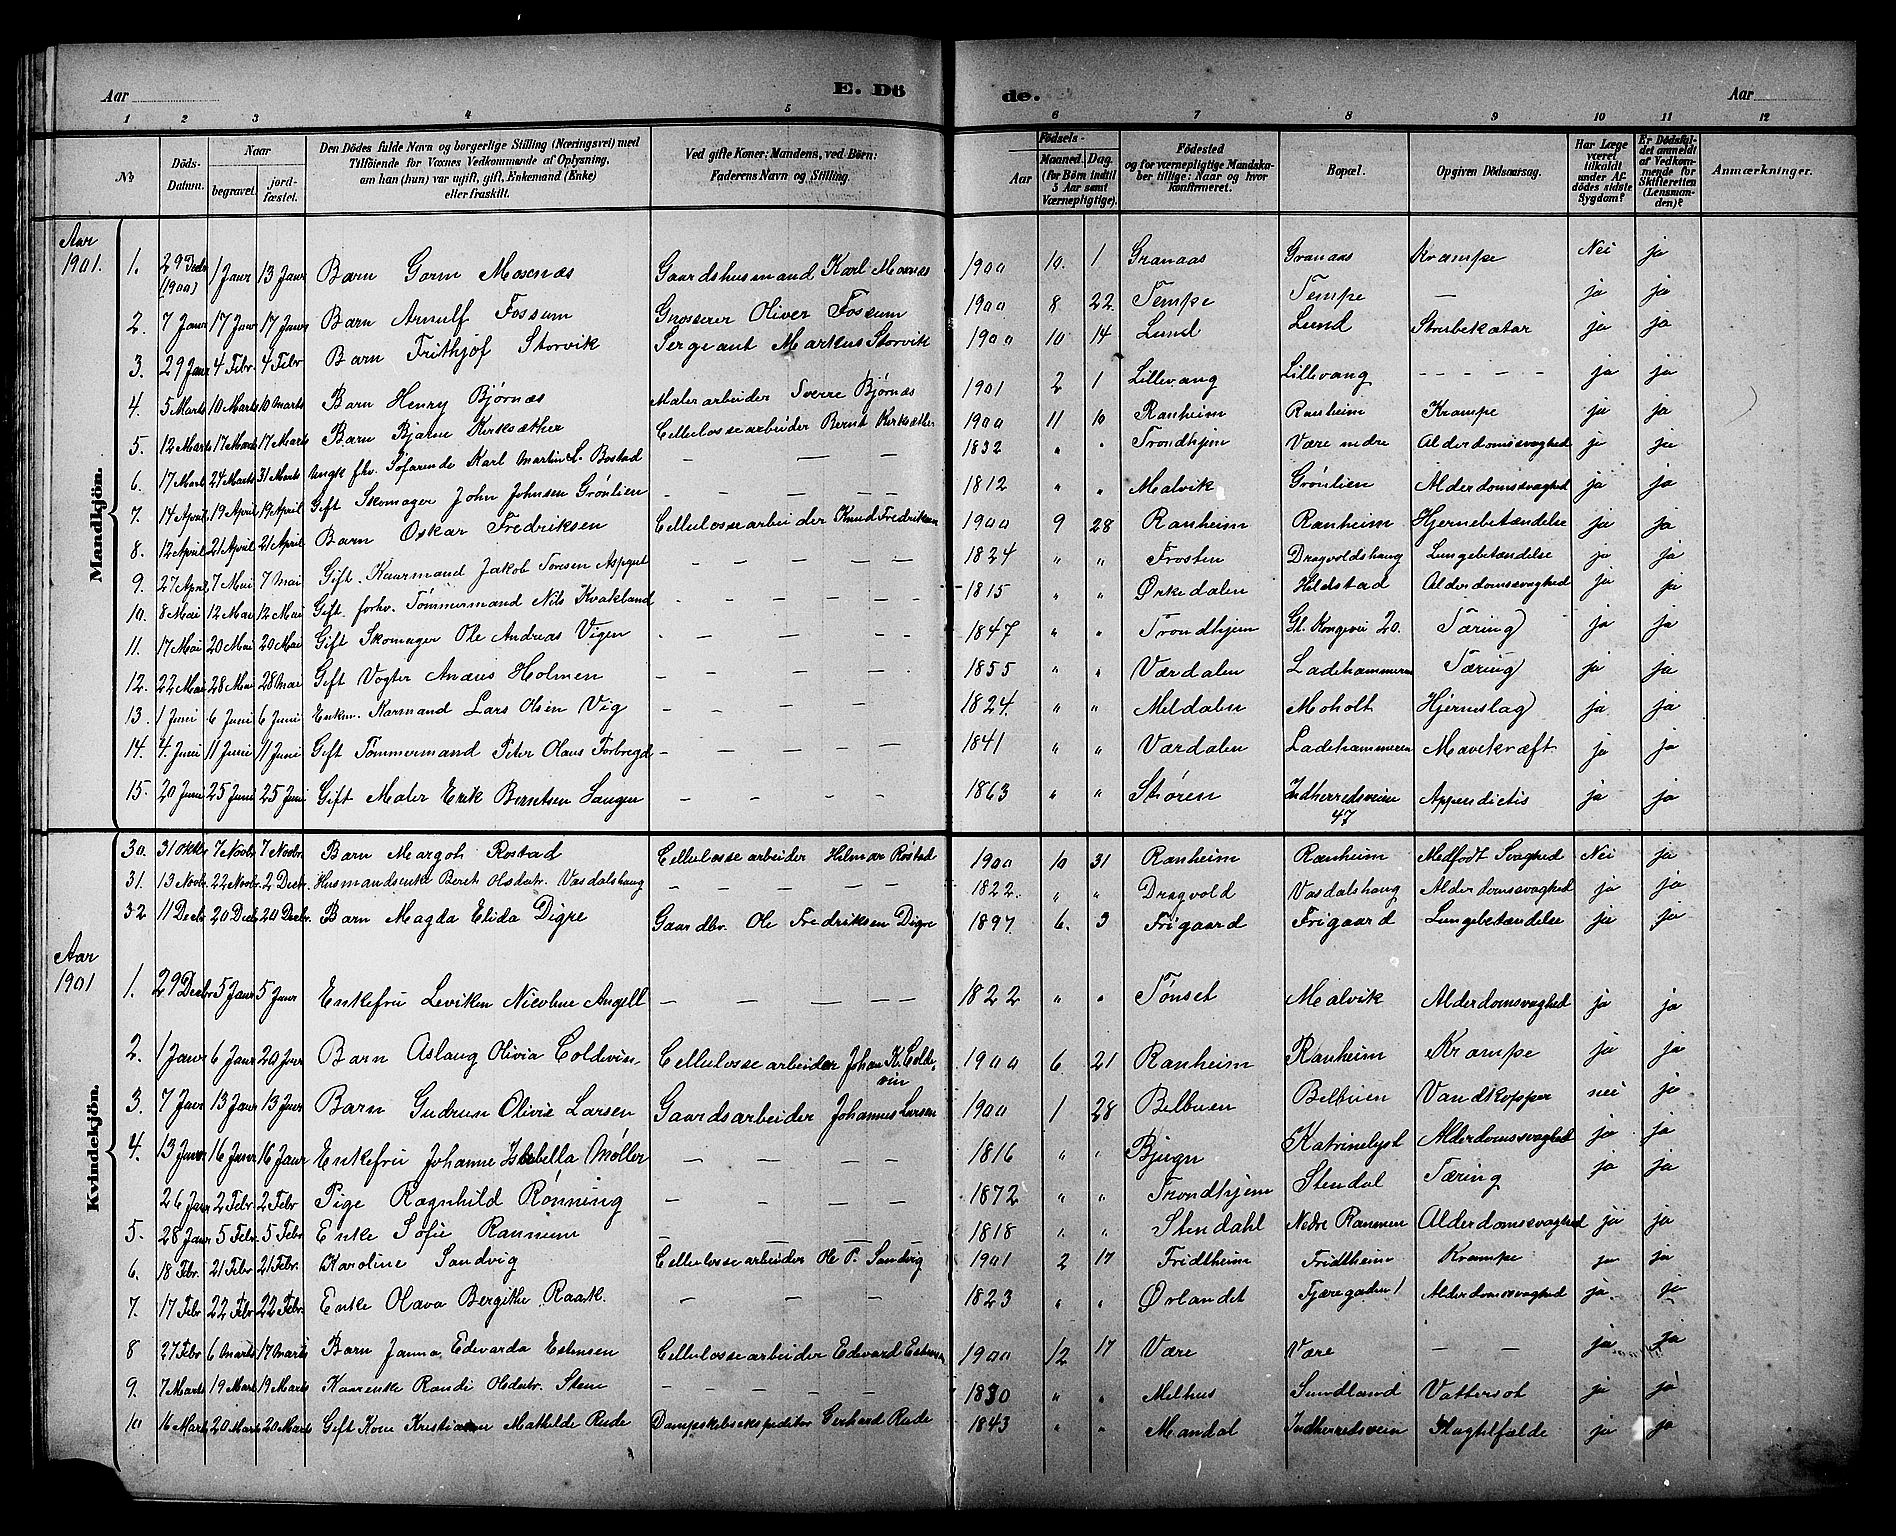 Aar
E. Dö
de.
Aar
1 2 3 4 5 6 7 8 9 10 11 12
№
Döds-Datum.
Naar
begravet.
jord-fæstet.
Den Dödes fulde Navn og borgerlige Stilling (Næringsvei) med
Tilföiende for Voxnes Vedkommende af Oplysning,
om han (hun) var ugift, gift, Enkemand (Enke)
eller fraskilt.
Ved gifte Koner: Mandens, ved Börn:
Faderens Navn og Stilling.
Födsels-
Aar
Maaned. Dag.
(for Börn indtil
5 Aar samt
Værnepligtige).
Födested
og for værnepligtige Mandska-
ber tillige: Naar og hvor
konfirmeret.
Bopæl.
Opgiven Dödsaarsag.
Har Læge
været
tilkaldt
under Af-
dödes sidste
Sygdom?
Er Dödsfal-
det anmeldt
af Vedkom-
mende for
Skifteretten
(Lensman-
den)?
Anmærkninger.
Mandkjön.
Aar 1901.
1. 29 Decbr (1900) 1 Janr 13 Janr Barn Gorm Mosnæs Gaardshusmand Karl Mosnæs 1900 10. 1 Granaas Granaas Krampe Nei ja
2. 7 Janr 17 Janr 17 Janr Barn Arnulf Fossum Grosserer Oliver Fossum 1900 8 22 Tempe Tempe — ja ja
3. 29 Janr 4 Febr. 4 Febr Barn Frithjof Storvik Sergeant Markus Storvik 1900 10 14 Lund Lund Strubekatar ja ja
4. 5 Marts 10 Marts 10 Marts Barn Henry Bjørnæs Malerarbeider Sverre Bjørnæs 1901 2 1 Lillevang Lillevang - - - - - ja ja
5. 12 Marts 17 Marts 17 Marts Barn Bjarne Kirksæther Cellulossearbeider Bernt Kirksæther 1900 11 10 Ranheim Ranheim Krampe ja ja
6. 17 Marts 24 Marts 31 Marts Ungk. fhv. Søfarende Karl Martin L. Bostad — — — 1832 " " Trondhjem Være nedre Alderdomssvaghed ja ja
7. 14 April 19 April 19 April Gift Skomager John Johnsen Grønlien - — — — 1812 " " Malvik Grønlien Alderdomssvaghed ja ja
8. 12 April 21 April 21 April Barn Oskar Fredriksen Cellulossearbeider Knud Fredriksen 1900 9 28 Ranheim Ranheim Hjernebetændelse ja ja
9. 27 April 7 Mai 7 Mai Gift. Kaarmand Jakob Toresen — — — — 1824 " " Frosten Dragvoldshaug Lungebetændelse ja ja
10. 8 Mai 12 Mai 12 Mai Gift. forhv. Tømmermand Nils Kvakland - — — — — 1815 " " Ørkedalen Heldstad Alderdomssvaghed ja ja
11. 17 Mai 20 Mai 20 Mai Gift Skomager Ole Andreas Vigen - — — — — 1847 " " Trondhjem Gl. Kongevei 20. Tæring ja ja
12. 22 Mai 28 Mai 28 Mai Gift Vogter Anæus Holmen — — — — 1855 " " Værdalen Ladehammeren Tæring ja ja
13. 1 Juni 6 Juni 6 Juni Enkm. Karmand Lars Olsen Vig - — — — 1824. " " Meldalen Moholt Hjerneslag ja ja
14. 4. Juni 11 Juni 11 Juni Gift Tømmermand Peter Olaus Forbregd — — — — 1841 " " Værdalen Ladehammeren Mavekræft ja ja
15. 20 Juni 25 Juni 25 Juni Gift Maler Erik Berntsen Haugen — — - — 1863 " " Støren Indherredsveien 47 Appendictis ja ja
Kvindekjön.
30. 31 Oktbr 7 Novbr. 7 Novbr. Barn Margoh Rostad Cellulossearbeider Helmar Rostad 1900 10 31 Ranheim Ranheim Medfødt Svaghed Nei ja
31. 13 Novbr. 22 Novbr. 2 Decbr Husmandsenke Beret Olsdatr. Vasdalshaug — — — — 1822. " " Dragvold Vasdalshaug Alderdomssvaghed ja ja
32 11 Decbr 20 Decbr 20 Decbr. Barn Magda Elida Digre Gaardbr. Ole Fredriksen Digre 1897. 6. 3 Frigaard Frigaard Lungebetændelse ja ja
Aar 1901
1. 29 Decbr 5 Janr 5 Janr Enkefru Leviken Nicoline Angell — — — — 1822 " " Tønset Malvik Alderdomssvaghed ja ja
2. 1 Janr 6 Janr 20 Janr Barn Aslaug Olivia Coldevin Cellulossearbeider Johan K. Coldevin 1900 6. 21 Ranheim Ranheim Krampe ja ja
3. 7 Janr 13 Janr 13 Janr Barn Gudrun Olivie Larsen Gaardsarbeider Johannes Larsen 1900 1 28 Belbuen Belbuen Vandkopper nei ja
4. 13 Janr 16 Janr 16 Janr Enkefru Johanne Isabella Møller — — — — 1816 " " Bjugn Katrinelyst Alderdomssvaghed ja ja
26 Janr 2 Febr 2 Febr Pige Ragnhild Rønning — — — — 1872 " " Trondhjem Stendal Tæring ja ja
5. 28 Janr 5 Febr. 5 Febr Enke Sofie Rannem — — — — 1818 " " Stendahl Nedre Rannem Alderdomssvaghed ja ja
6. 18 Febr. 21 Febr 21 Febr. Karoline Sandvig Cellulossearbeider Ole P. Sandvig 1901 2 17 Fridtheim Fridtheim Krampe ja ja
7. 17 Febr 22 Febr 22 Febr. Enke Olava Bergithe Raak. — — — — 1823 " " Ørlandet Tjæregaden 1 Alderdomssvaghed ja. ja
8 27 Febr 6 Marts 17 Marts Barn Janna Edevarda Estensen Cellulossearbeider Edevard Estensen 1900 12 17 Være Være — — ja ja
9. 7 Marts 19 Marts 19 Marts Kaarenke Randi Olsdatr. Stene - — — — — 1830 " " Melhus Sundland Vattersot ja ja
10 16 Marts 20 Marts 20 Marts Gift Kone Kristianne Mathilde Rude Dampskibsekspeditør Gerhard Rude 1843 " " Mandal Indherredsveien Slagtilfælde ja ja